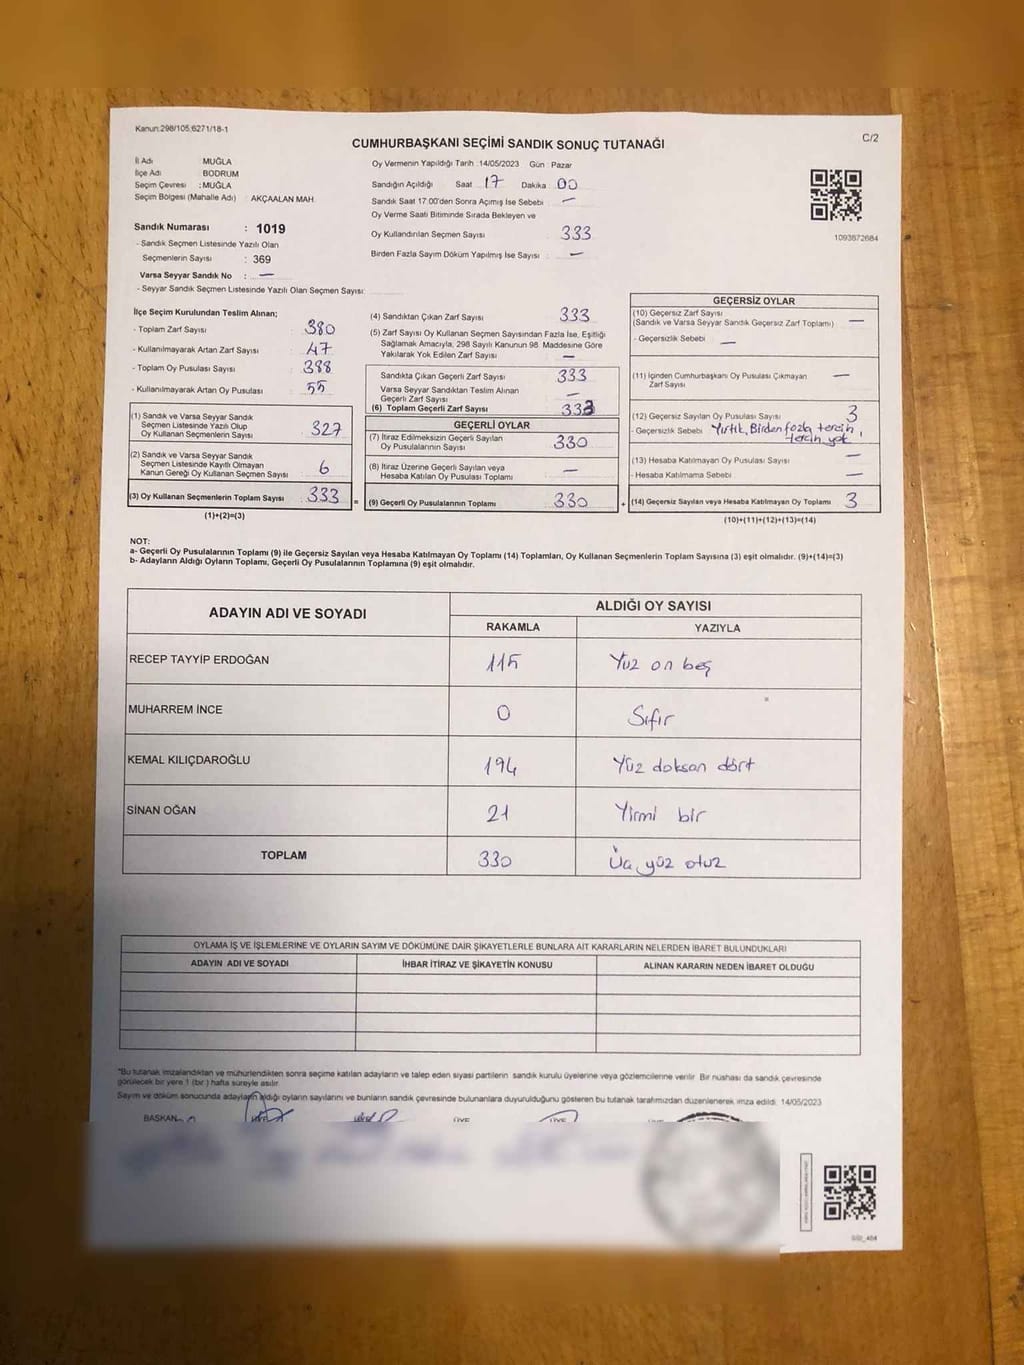 Kanun:298/105,6271/18-1
C/2
CUMHURBAŞKANI SEÇİMİ SANDIK SONUÇ TUTANAĞI
İl Adı MUĞLA
İlçe Adı BODRUM
Seçim Çevresi : MUĞLA
Seçim Bölgesi (Mahalle Adı) : AKÇAALAN MAH.
Sandık Numarası : 1019
- Sandık Seçmen Listesinde Yazılı Olan
Seçmenlerin Sayısı : 369
Varsa Seyyar Sandık No : —
- Seyyar Sandık Seçmen Listesinde Yazılı Olan Seçmen Sayısı:
Oy Vermenin Yapıldığı Tarih : 14/05/2023 Gün : Pazar
Sandığın Açıldığı Saat 17 Dakika : 00
Sandık Saat 17:00'den Sonra Açımış İse Sebebi : —
Oy Verme Saati Bitiminde Sırada Bekleyen ve
Oy Kullandırılan Seçmen Sayısı : 333
Birden Fazla Sayım Döküm Yapılmış İse Sayısı : —
1093872684
İlçe Seçim Kurulundan Teslim Alınan;
- Toplam Zarf Sayısı : 380
- Kullanılmayarak Artan Zarf Sayısı : 47
- Toplam Oy Pusulası Sayısı : 388
- Kullanılmayarak Artan Oy Pusulası : 55
(1) Sandık ve Varsa Seyyar Sandık
Seçmen Listesinde Yazılı Olup
Oy Kullanan Seçmenlerin Sayısı 327
(2) Sandık ve Varsa Seyyar Sandık
Seçmen Listesinde Kayıtlı Olmayan
Kanun Gereği Oy Kullanan Seçmen Sayısı 6
(3) Oy Kullanan Seçmenlerin Toplam Sayısı 333
(1)+(2)=(3)
(4) Sandıktan Çıkan Zarf Sayısı 333
(5) Zarf Sayısı Oy Kullanan Seçmen Sayısından Fazla İse, Eşitliği
Sağlamak Amacıyla, 298 Sayılı Kanunun 98. Maddesine Göre
Yakılarak Yok Edilen Zarf Sayısı —
Sandıkta Çıkan Geçerli Zarf Sayısı 333
Varsa Seyyar Sandıktan Teslim Alınan
Geçerli Zarf Sayısı —
(6) Toplam Geçerli Zarf Sayısı 333
GEÇERLİ OYLAR
(7) İtiraz Edilmeksizin Geçerli Sayılan
Oy Pusulalarının Sayısı 330
(8) İtiraz Üzerine Geçerli Sayılan veya
Hesaba Katılan Oy Pusulası Toplamı —
= (9) Geçerli Oy Pusulalarının Toplamı 330
GEÇERSİZ OYLAR
(10) Geçersiz Zarf Sayısı
(Sandık ve Varsa Seyyar Sandık Geçersiz Zarf Toplamı) —
- Geçersizlik Sebebi —
(11) İçinden Cumhurbaşkanı Oy Pusulası Çıkmayan
Zarf Sayısı —
(12) Geçersiz Sayılan Oy Pusulası Sayısı 3
- Geçersizlik Sebebi Yırtık, Birden fazla tercih,
tercih yok
(13) Hesaba Katılmayan Oy Pusulası Sayısı —
- Hesaba Katılmama Sebebi —
+ (14) Geçersiz Sayılan veya Hesaba Katılmayan Oy Toplamı 3
(10)+(11)+(12)+(13)=(14)
NOT:
a- Geçerli Oy Pusulalarının Toplamı (9) ile Geçersiz Sayılan veya Hesaba Katılmayan Oy Toplamı (14) Toplamları, Oy Kullanan Seçmenlerin Toplam Sayısına (3) eşit olmalıdır. (9)+(14)=(3)
b- Adayların Aldığı Oyların Toplamı, Geçerli Oy Pusulalarının Toplamına (9) eşit olmalıdır.
ADAYIN ADI VE SOYADI ALDIĞI OY SAYISI
RAKAMLA YAZIYLA
RECEP TAYYİP ERDOĞAN 115 Yüz on beş
MUHARREM İNCE 0 Sıfır
KEMAL KILIÇDAROĞLU 194 Yüz doksan dört
SİNAN OĞAN 21 Yirmi bir
TOPLAM 330 Üç yüz otuz
OYLAMA İŞ VE İŞLEMLERİNE VE OYLARIN SAYIM VE DÖKÜMÜNE DAİR ŞİKAYETLERLE BUNLARA AİT KARARLARIN NELERDEN İBARET BULUNDUKLARI
ADAYIN ADI VE SOYADI İHBAR İTİRAZ VE ŞİKAYETİN KONUSU ALINAN KARARIN NEDEN İBARET OLDUĞU
"Bu tutanak imzalandıktan ve mühürlendikten sonra seçime katılan adayların ve talep eden siyasi partilerin sandık kurulu üyelerine veya gözlemcilerine verilir. Bir nüshası da sandık çevresinde
görülecek bir yere 1 (bir) hafta süreyle asılır.
Sayım ve döküm sonucunda adayların aldığı oyların sayılarını ve bunların sandık çevresinde bulunanlara duyurulduğunu gösteren bu tutanak tarafımızdan düzenlenerek imza edildi. 14/05/2023
BAŞKAN ÜYE ÜYE ÜYE